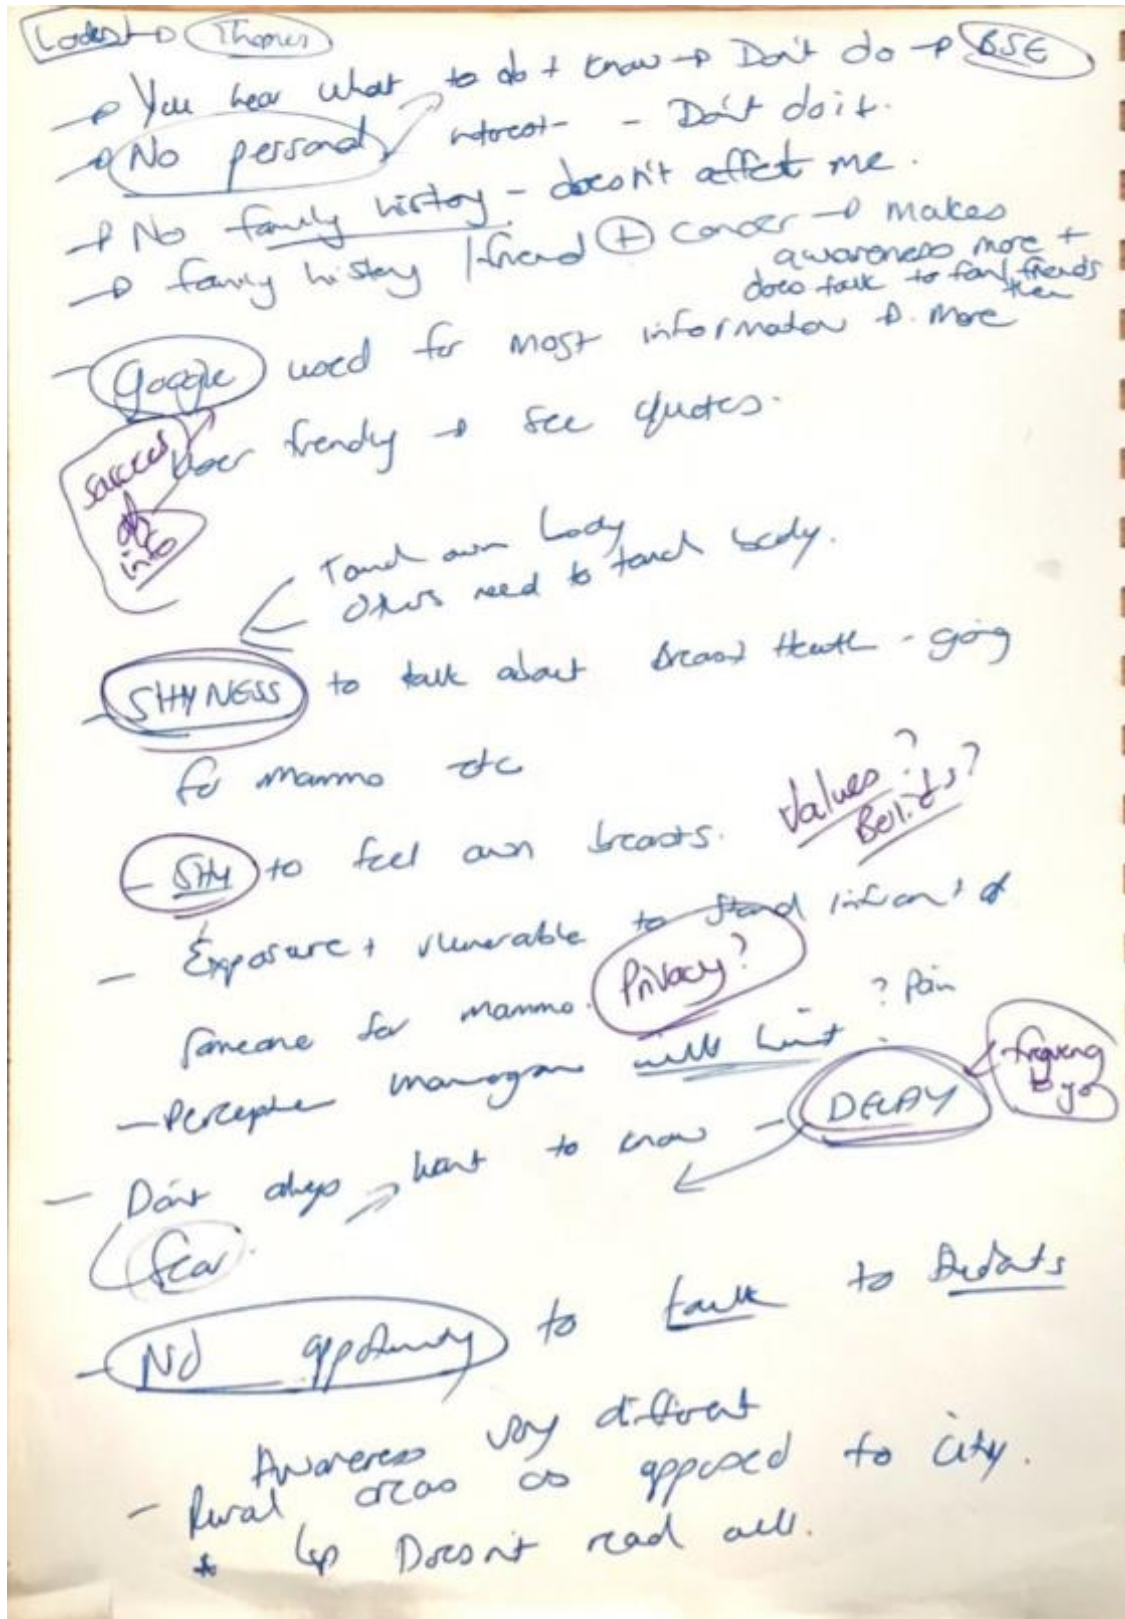 Themes
→ You hear what to do + know → Don't do → BSE
→ No personal interest - Don't do it.
→ No family history - doesn't affect me.
→ family history / friend + cancer → makes
awareness more +
does talk to fam/friends
then
- Google used for most information → more
user friendly → see quotes.
sources
of
info
Touch own body
Others need to touch body.
- SHYNESS to talk about Breast Health - going
for mammo etc
Values?
Beliefs?
- SHY to feel own breasts.
- Exposure + vlunerable to stand infront of
someone for mammo. Privacy?
- Perception mamogram will hurt ? Pain
- Don't always want to know - DELAY
fear.
- No oppotunity to talk to
Awareness very different
- Rural areas as opposed to city.
* ↳ Doesn't read all.